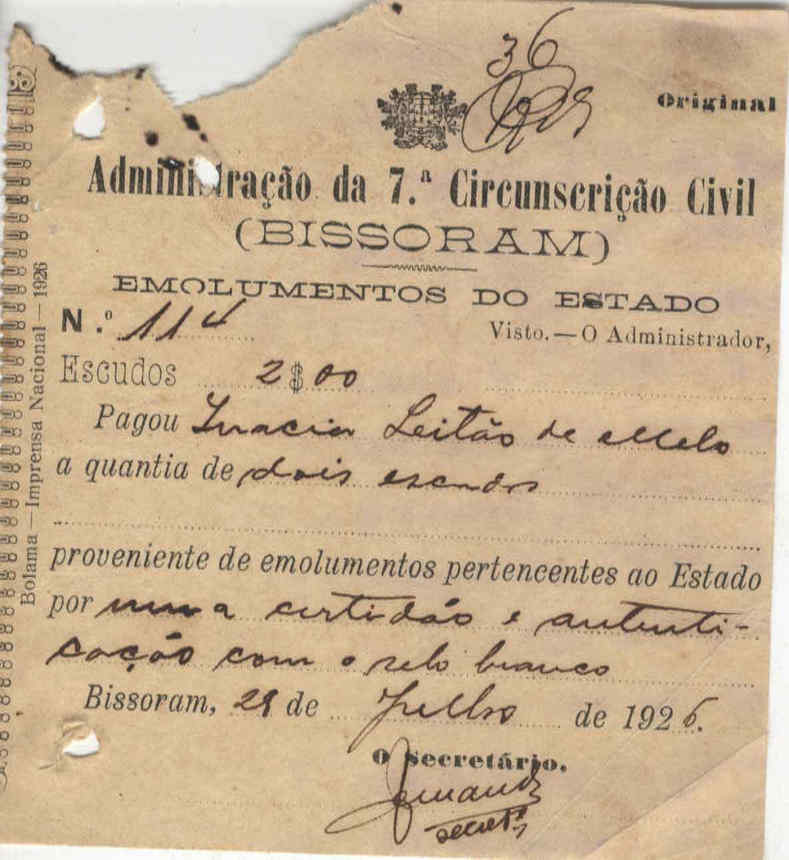 36
Original
Administração da 7.ª Circunscrição Civil
(BISSORAM)
EMOLUMENTOS DO ESTADO
N.º 114
Visto.—O Administrador,
Escudos 2$00
Pagou Inacia Leitão de Mello
a quantia de dois escudos
proveniente de emolumentos pertencentes ao Estado
por uma certidão e autenti-
cação com o selo branco
Bissoram, 29 de Julho de 1926.
O Secretário,
Bolama—Imprensa Nacional—1926